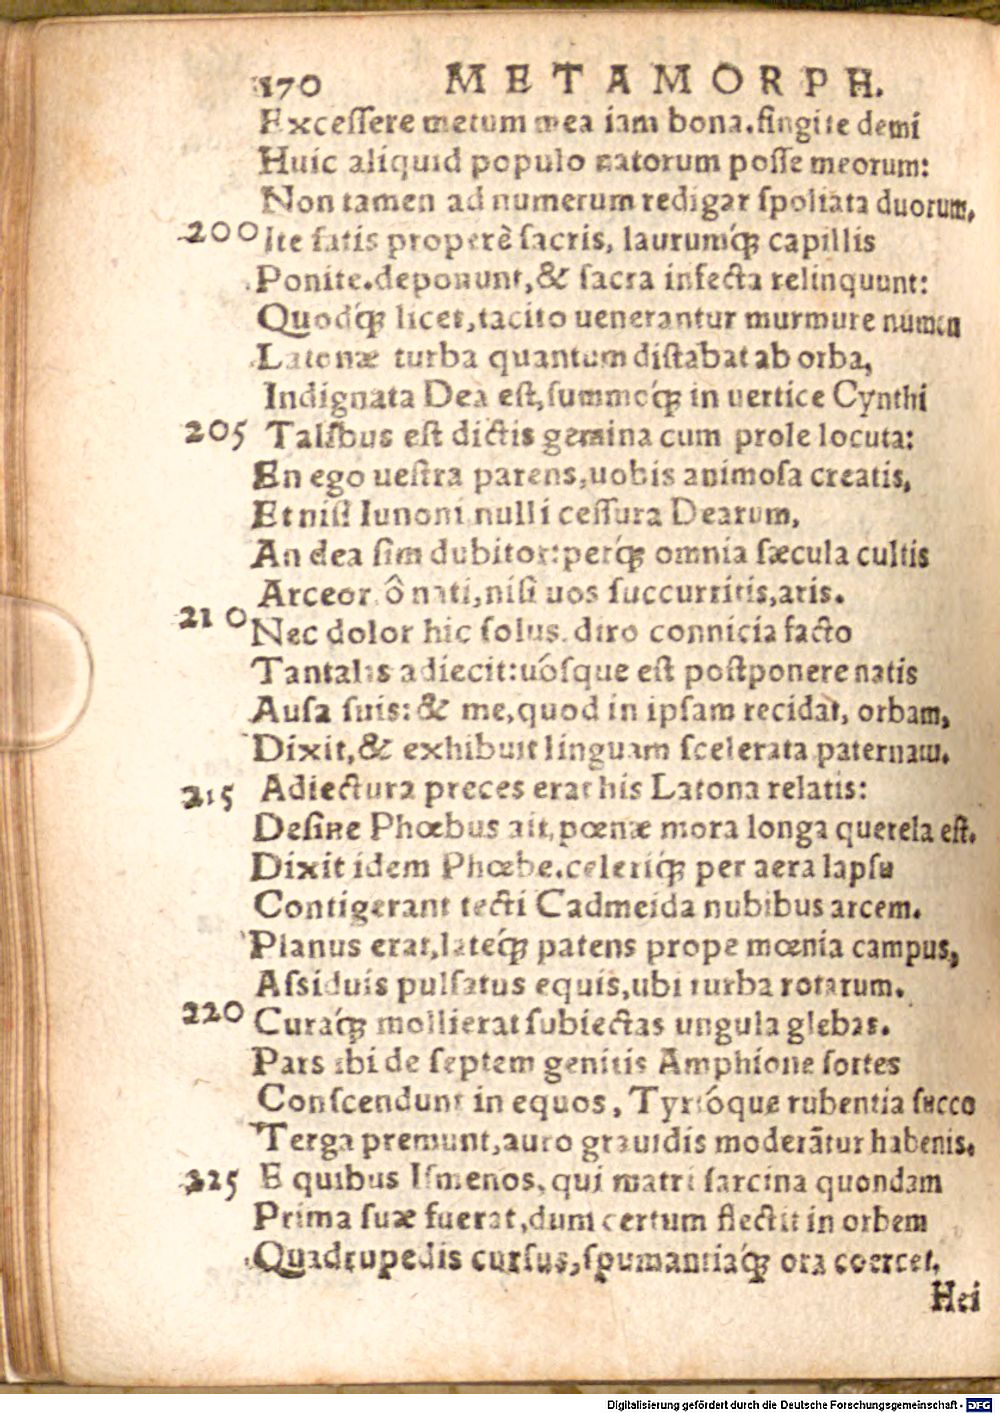 170 METAMORPH.
Excessere metum mea iam bona. fingite demi
Huic aliquid populo natorum posse meorum:
Non tamen ad numerum redigar spoliata duorum,
200 Ite satis properè sacris, laurumq́; capillis
Ponite. deponunt, & sacra infecta relinquunt:
Quodq́; licet, tacito uenerantur murmure numen
Latonæ turba quantum distabat ab orba,
Indignata Dea est, summoq́; in uertice Cynthi
205 Talibus est dictis gemina cum prole locuta:
En ego uestra parens, uobis animosa creatis,
Et nisi Iunoni nulli cessura Dearum,
An dea sim dubitor: perq́; omnia sæcula cultis
Arceor ô nati, nisi uos succurritis, aris.
210 Nec dolor hic solus. diro conuicia facto
Tantalis adiecit: uósque est postponere natis
Ausa suis: & me, quod in ipsam recidat, orbam,
Dixit, & exhibuit linguam scelerata paternam.
215 Adiectura preces erat his Latona relatis:
Desine Phœbus ait, pœnæ mora longa querela est.
Dixit idem Phœbe. celeriq́; per aera lapsu
Contigerant tecti Cadmeida nubibus arcem.
Planus erat, lateq́; patens prope mœnia campus,
Assiduis pulsatus equis, ubi turba rotarum.
220 Curaq́; mollierat subiectas ungula glebas.
Pars ibi de septem genitis Amphione fortes
Conscendunt in equos, Tyrióque rubentia succo
Terga premunt, auro grauidis moderãtur habenis.
225 E quibus Ismenos, qui matri sarcina quondam
Prima suæ fuerat, dum certum flectit in orbem
Quadrupedis cursus, spumantiaq́; ora coercet,
Hei
Digitalisierung gefördert durch die Deutsche Forschungsgemeinschaft - DFG